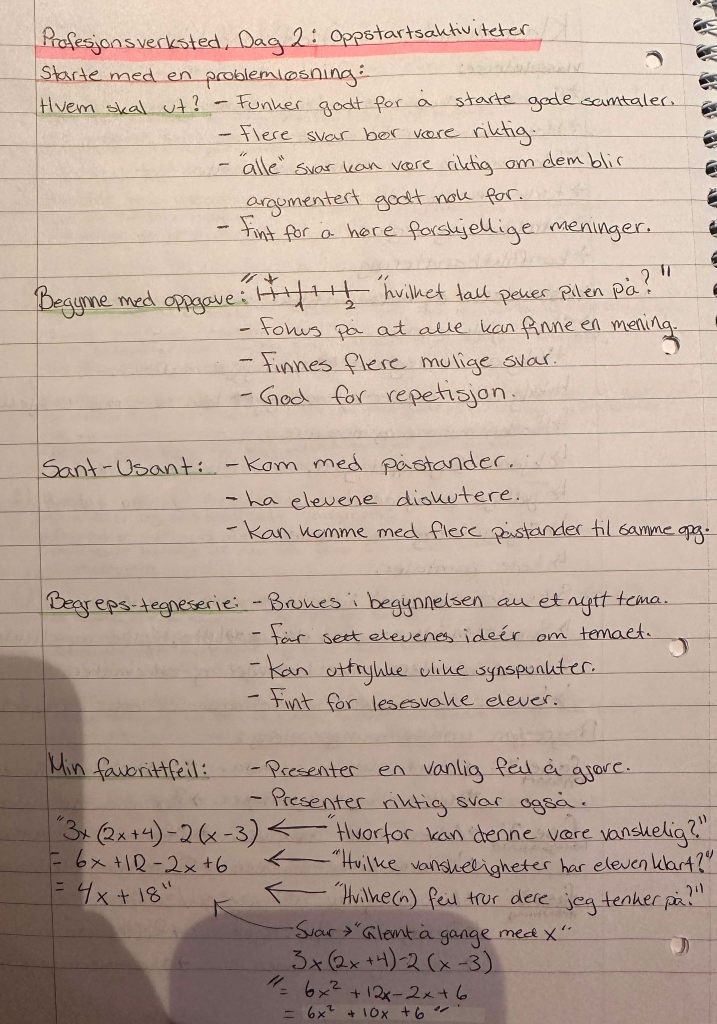 Profesjonsverksted, Dag 2: Oppstartsaktiviteter
Starte med en problemløsning:
Hvem skal ut? - Funker godt for å starte gode samtaler.
- Flere svar bør være riktig.
- "alle" svar kan være riktig om dem blir
argumentert godt nok for.
- Fint for å høre forskjellige meninger.
Begynne med oppgave: " 1 2 "hvilket tall peker pilen på?"
- Fokus på at alle kan finne en mening.
- Finnes flere mulige svar.
- God for repetisjon.
Sant-Usant: - Kom med påstander.
- La elevene diskutere.
- Kan komme med flere påstander til samme opg.
Begreps-tegneserie: - Brukes i begynnelsen av et nytt tema.
- Får sett elevenes ideér om temaet.
- Kan uttrykke ulike synspunkter.
- Fint for lesesvake elever.
Min favorittfeil: - Presenter en vanlig feil å gjøre.
- Presenter riktig svar også.
"3x(2x+4)-2(x-3) ← "Hvorfor kan denne være vanskelig?"
= 6x+12-2x+6 ← "Hvilke vanskeligheter har eleven klart?"
= 4x+18" ← "Hvilke(n) feil tror dere jeg tenker på?"
Svar → "Glemt å gange med x"
3x(2x+4)-2(x-3)
"= 6x²+12x-2x+6
= 6x²+10x+6"